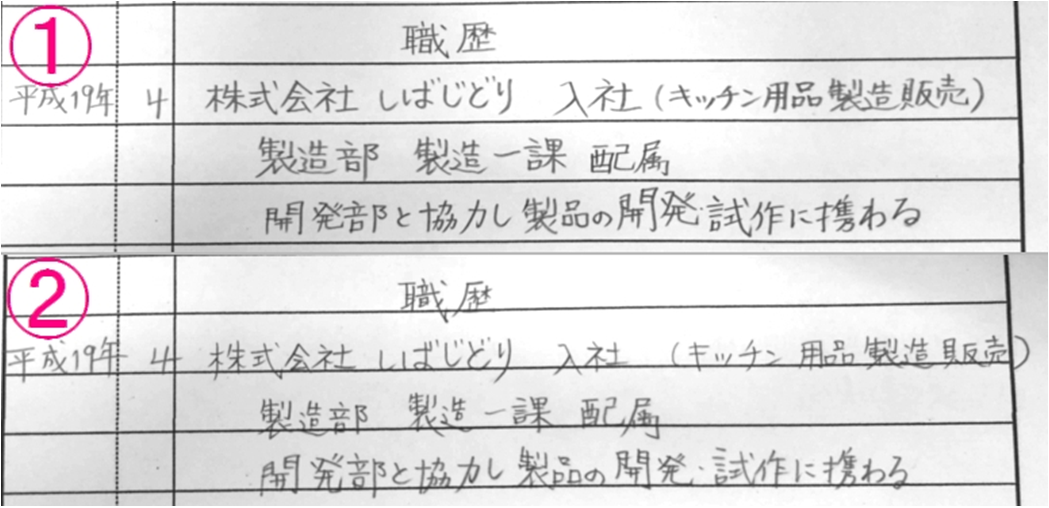 ①
職歴
平成19年 4 株式会社 しばじどり 入社 (キッチン用品製造販売)
製造部 製造一課 配属
開発部と協力し製品の開発・試作に携わる
②
職歴
平成19年 4 株式会社 しばじどり 入社 (キッチン用品製造販売)
製造部 製造一課 配属
開発部と協力し製品の開発・試作に携わる